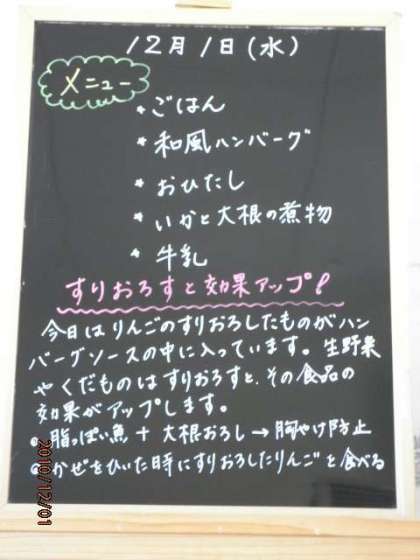 12月1日(水)
メニュー
* ごはん
* 和風ハンバーグ
* おひたし
* いかと大根の煮物
* 牛乳
すりおろすと効果アップ!
今日はりんごのすりおろしたものがハン
バーグソースの中に入っています。生野菜
やくだものはすりおろすと、その食品の
効果がアップします。
脂っぽい魚 + 大根おろし → 胸やけ防止
かぜをひいた時にすりおろしたりんごを食べる
2010/12/01